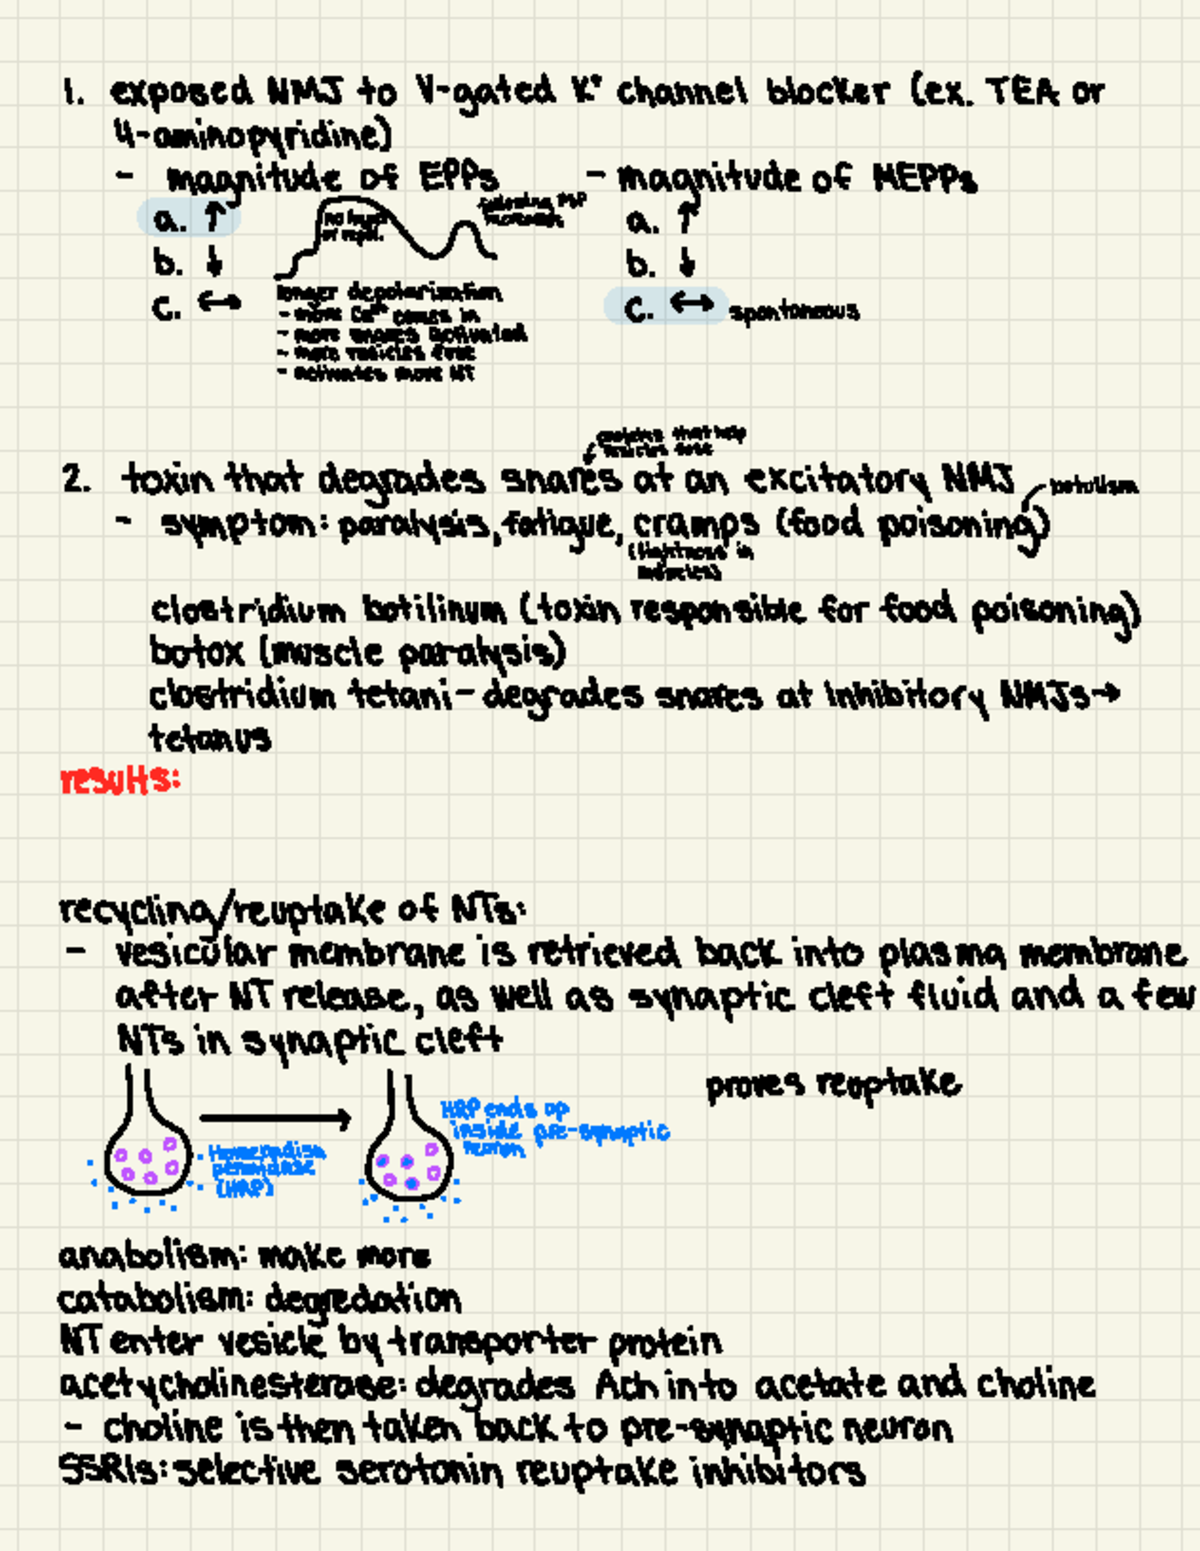 1. exposed NMJ to V-gated K+ channel blocker (ex. TEA or
4-aminopyridine)
- magnitude of EPPs
a. ↑
b. ↓
c. ↔
following PSP
increases
longer depolarization
- more Ca²⁺ comes in
- more snares activated
- more vesicles fuse
- activates more NT
- magnitude of MEPPs
a. ↑
b. ↓
c. ↔ spontaneous
proteins that help
vesicles fuse
2. toxin that degrades snares at an excitatory NMJ
botulism
- symptom: paralysis, fatigue, cramps (food poisoning)
(tightness in
muscles)
clostridium botilinum (toxin responsible for food poisoning)
botox (muscle paralysis)
clostridium tetani - degrades snares at inhibitory NMJs →
tetanus
results:
recycling/reuptake of NTs:
- vesicular membrane is retrieved back into plasma membrane
after NT release, as well as synaptic cleft fluid and a few
NTs in synaptic cleft
proves reuptake
HRP ends up
inside pre-synaptic
neuron
(HRP)
anabolism: make more
catabolism: degredation
NT enter vesicle by transporter protein
acetycholinesterase: degrades Ach into acetate and choline
- choline is then taken back to pre-synaptic neuron
SSRIs: selective serotonin reuptake inhibitors